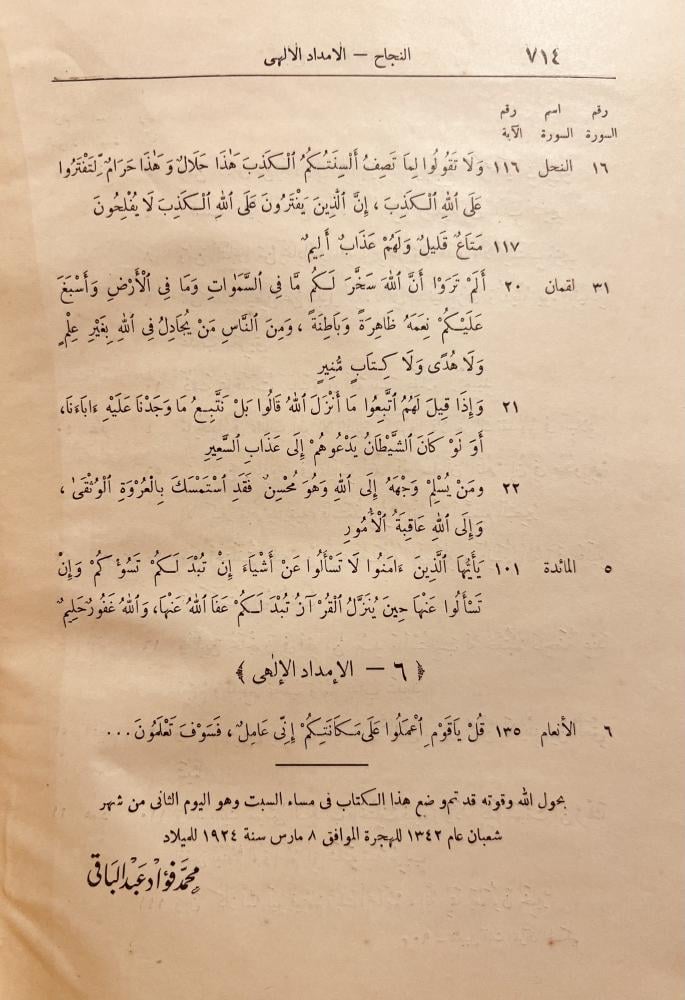 ٧١٤ النجاح — الامداد الالهى
رقم اسم رقم
السورة السورة الآية
١٦ النحل ١١٦ وَلَا تَقُولُوا لِمَا تَصِفُ أَلْسِنَتُكُمُ الْكَذِبَ هَٰذَا حَلَالٌ وَهَٰذَا حَرَامٌ لِّتَفْتَرُوا
عَلَى اللهِ الْكَذِبَ ، إِنَّ الَّذِينَ يَفْتَرُونَ عَلَى اللهِ الْكَذِبَ لَا يُفْلِحُونَ
١١٧ مَتَاعٌ قَلِيلٌ وَلَهُمْ عَذَابٌ أَلِيمٌ
٣١ لقمان ٢٠ أَلَمْ تَرَوْا أَنَّ اللهَ سَخَّرَ لَكُم مَّا فِى السَّمَٰوَاتِ وَمَا فِى الْأَرْضِ وَأَسْبَغَ
عَلَيْكُمْ نِعَمَهُ ظَاهِرَةً وَبَاطِنَةً ، وَمِنَ النَّاسِ مَنْ يُجَادِلُ فِى اللهِ بِغَيْرِ عِلْمٍ
وَلَا هُدًى وَلَا كِتَابٍ مُّنِيرٍ
٢١ وَإِذَا قِيلَ لَهُمُ اتَّبِعُوا مَا أَنْزَلَ اللهُ قَالُوا بَلْ نَتَّبِعُ مَا وَجَدْنَا عَلَيْهِ ءَابَاءَنَا،
أَوَ لَوْ كَانَ الشَّيْطَانُ يَدْعُوهُمْ إِلَى عَذَابِ السَّعِيرِ
٢٢ وَمَنْ يُسْلِمْ وَجْهَهُ إِلَى اللهِ وَهُوَ مُحْسِنٌ فَقَدِ اسْتَمْسَكَ بِالْعُرْوَةِ الْوُثْقَىٰ ،
وَإِلَى اللهِ عَاقِبَةُ الْأُمُورِ
٥ المائدة ١٠١ يَأَيُّهَا الَّذِينَ ءَامَنُوا لَا تَسْأَلُوا عَنْ أَشْيَاءَ إِنْ تُبْدَ لَكُمْ تَسُؤْكُمْ وَإِنْ
تَسْأَلُوا عَنْهَا حِينَ يُنَزَّلُ الْقُرْآنُ تُبْدَ لَكُمْ عَفَا اللهُ عَنْهَا، وَاللهُ غَفُورٌ حَلِيمٌ
﴿ ٦ — الإمداد الإلٰهى ﴾
٦ الأنعام ١٣٥ قُلْ يَاقَوْمِ اعْمَلُوا عَلَى مَكَانَتِكُمْ إِنِّى عَامِلٌ ، فَسَوْفَ تَعْلَمُونَ ...
بحول الله وقوته قد تم وضع هذا الكتاب فى مساء السبت وهو اليوم الثانى من شهر
شعبان عام ١٣٤٢ للهجرة الموافق ٨ مارس سنة ١٩٢٤ للميلاد
محمد فؤاد عبد الباقى